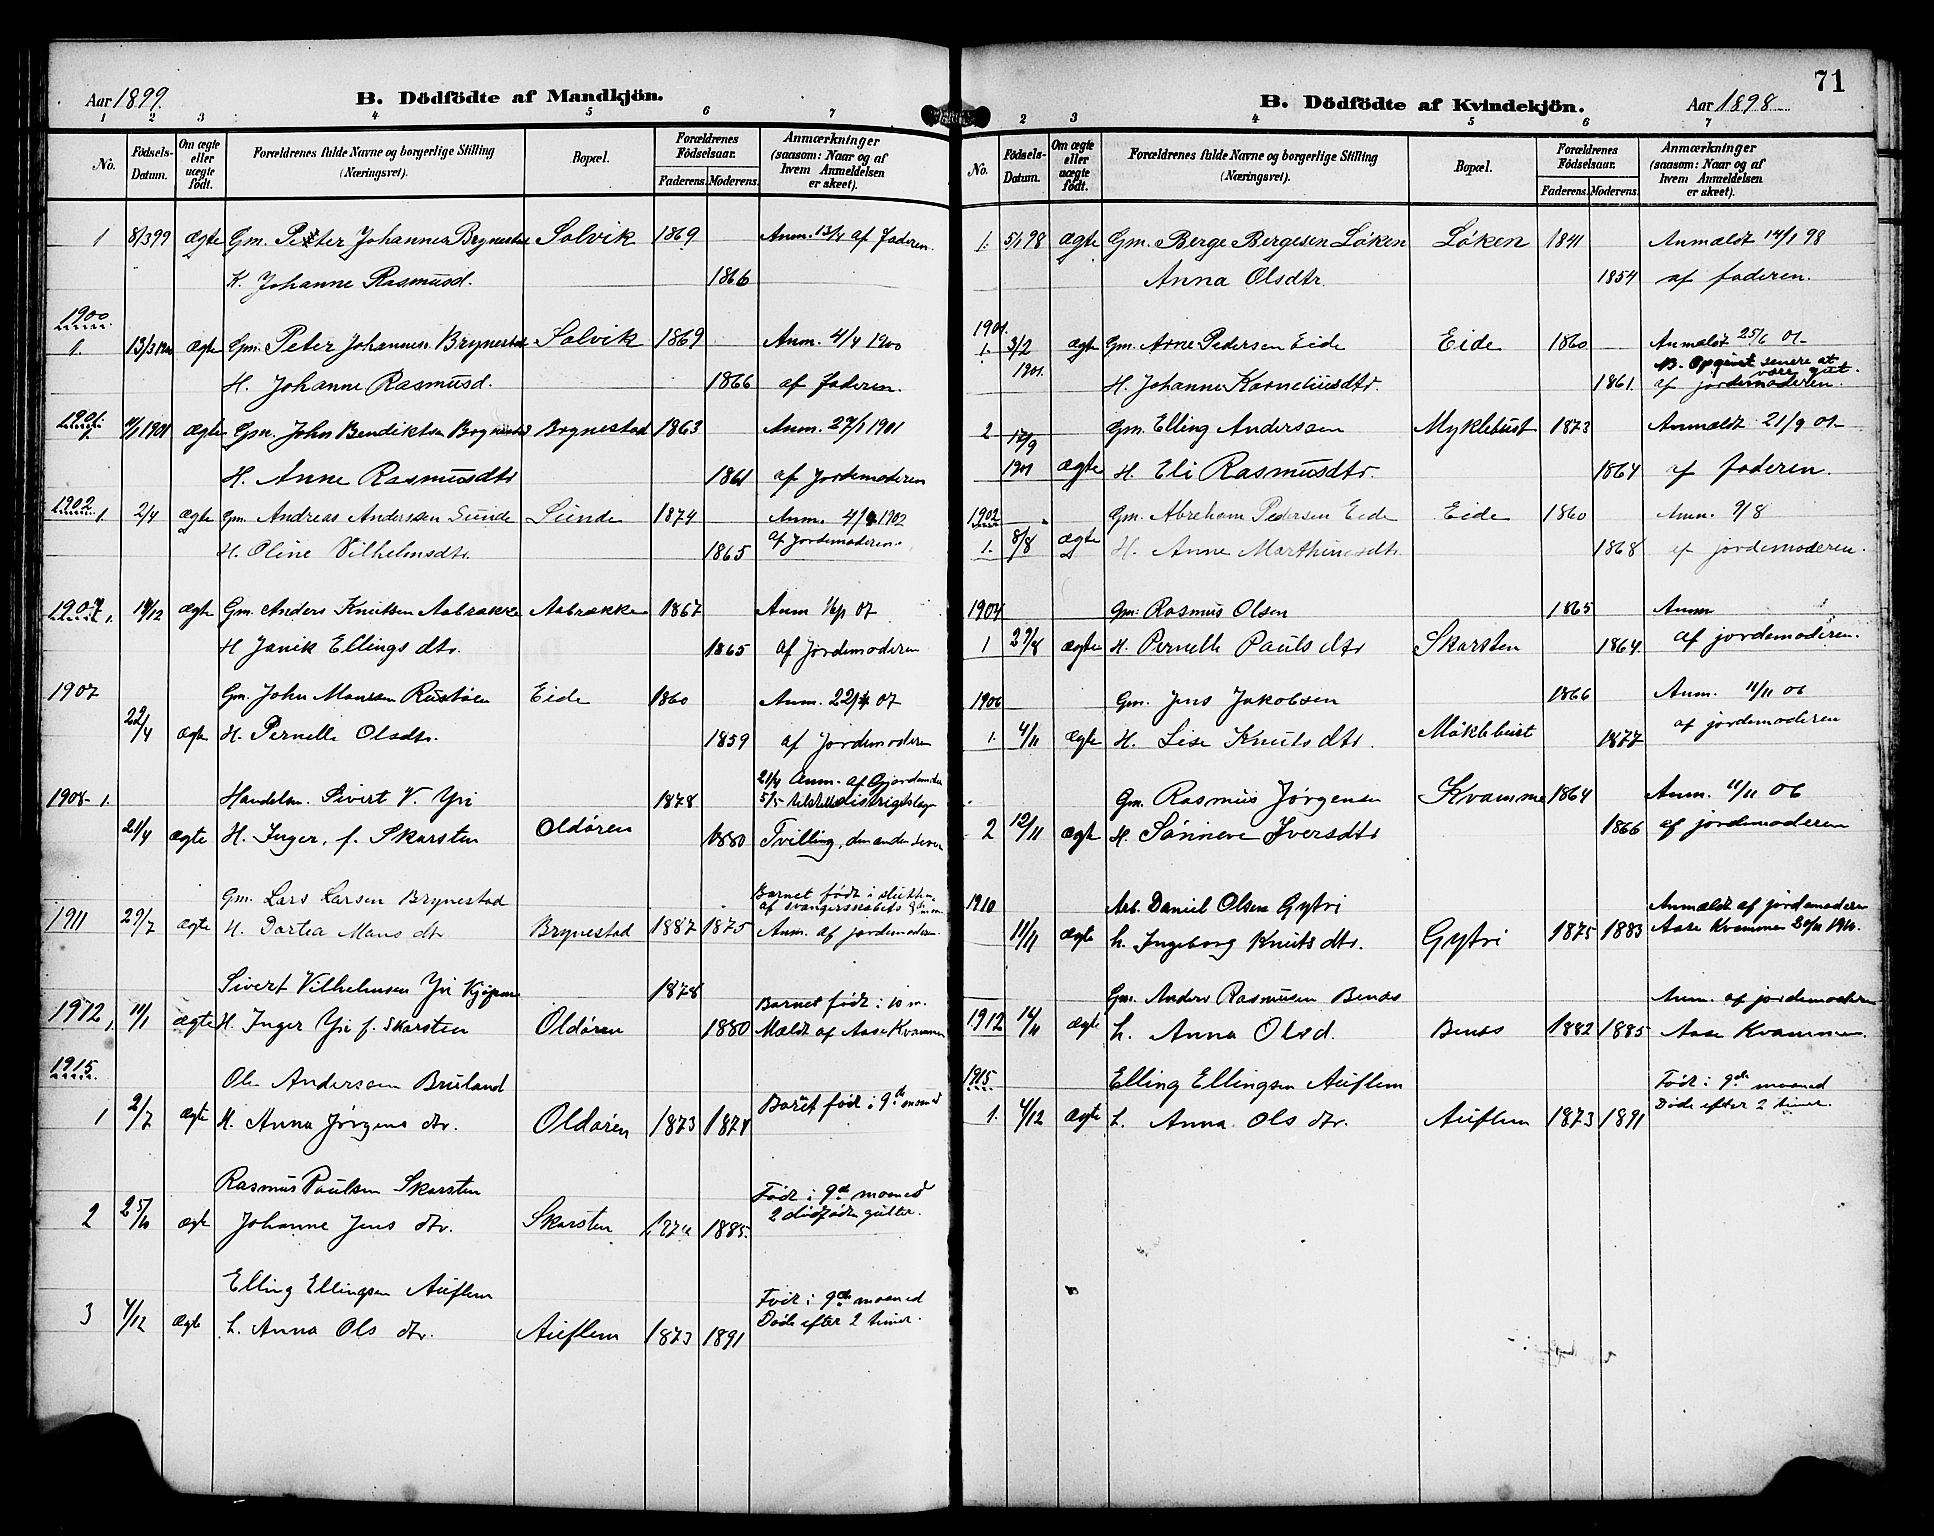 Aar 1899.
B. Dödfödte af Mandkjön.
1 2 3 4 5 6 7
No.
Födsels-Datum.
Om ægte eller uægte födt.
Forældrenes fulde Navne og borgerlige Stilling (Næringsvei).
Bopæl.
Forældrenes Födselsaar.
Faderens. Moderens.
Anmærkninger (saasom: Naar og af hvem Anmeldelsen er skeet).
1 8/3 99 ægte Gm. Peter Johannes Brynestad Solvik 1869 Anm. 13/4 af Faderen.
K. Johanne Rasmusd. 1866
1900
1. 13/3 ægte Gm. Peter Johannes. Brynestad Solvik 1869 Anm. 4/4 1900
H. Johanne Rasmusd. 1866 af Faderen.
1901.
1901 ægte Gm. John Bendiktsen Brynestad Brynestad 1863 Anm. 27/1 1901
H. Anne Rasmusdtr 1861 af Jordemoderen
1902 1. 2/4 ægte Gm. Andreas Anderssen Sunde Sunde 1874 Anm. 4/4 1902
H. Oline Vilhelmsdtr. 1865 af Jordemoderen.
1907 1. 14/12 ægte Gm. Anders Knutsen Aabrække Aabrække 1867 Anm 07
H Janik Ellings dtr. 1865 af Jordemoderen
1907 Gm. John Monsen Rustøen Eide 1860 Anm. 22/4 07
22/4 ægte H. Pernelle Olsdtr. 1859 af Jordemoderen
21/4 Anm. af Gjordemoder
1908 1. Handelsm. Sivert V. Yri 1878 5/5 distrigtslæge
21/4 ægte H. Inger, f. Skarsten Oldøren 1880 Tvilling, den anden lever
Barnet født i slutten
Gm. Lars Larsen Brynestad af svangerskabets 9de m.
1911 29/7 ægte H. Dortea Mons dtr. Brynestad 1887 1875 Anm. af jordemoder.
Sivert Vilhelmsen Yri Kjøpm 1878 Barnet født i 10 m.
1912 1. 11/1 ægte H. Inger Yri f. Skarsten Oldøren 1880 Meldt af Aase Kvammen
1915
Ole Andersen Bruland
1 2/7 ægte H. Anna Jørgens dtr. Oldøren 1873 1874 Barnet født i 9de maaned
Rasmus Paulsen Skarsten Født i 9de maaned
2 25/10 ægte Johanne Jens dtr. Skarsten 1885. 2 dødfødte gutter.
Elling Ellingsen Auflem Født i 9de maaned
3 4/12 ægte h. Anna Ols dtr. Auflem 1873 1891 Døde efter 2 timer.
71
B. Dödfödte af Kvindekjön.
Aar 1898
2 3 4 5 6 7
No.
Födsels-Datum.
Om ægte eller uægte födt.
Forældrenes fulde Navne og borgerlige Stilling (Næringsvei).
Bopæl.
Forældrenes Födselsaar.
Faderens. Moderens.
Anmærkninger (saasom: Naar og af hvem Anmeldelsen er skeet).
1. 5/1 98 ægte Gm. Berge Bergesen Løken Løken 1841 Anmeldt 14/1 98
Anna Olsdtr. 1854 af faderen.
1901.
1. 3/2 1901. ægte Gm. Arne Pedersen Eide Eide 1860 Anmeldt 25/6 01-
N. Opgivet senere at være gut.
H. Johanne Korneliusdtr. 1861. af jordemoderen.
2 12/9 Gm. Elling Anderssen Myklebust 1873 Anmeldt 21/9 01-
1901 ægte H. Eli Rasmusdtr. 1864 af faderen.
1902 Gm. Abraham Pedersen Eide Eide 1860 Anm. 9/8
1. 8/8 ægte H. Anne Marthinusdtr. 1868 af jordemoderen.
1904 Gm: Rasmus Olsen 1865 Anm
1 29/8 ægte H. Pernelle Pauls dtr Skarsten 1864 af jordemoderen.
1906 Gm. Jens Jakobsen 1866 Anm. 11/11 06
1. 4/11 ægte H. Lise Knuts dtr. Møklebust 1877 af jordemoderen
Gm. Rasmus Jørgensen Kvamme 1864 Anm. 11/11 06
2 12/11 ægte H. Sønneve Iversdtr 1866 af jordemoderen
1910 Arb. Daniel Olsen Gytri Anmeldt af jordemoderen
11/11 ægte h. Ingeborg Knuts dtr. Gytri 1875 1883 Aase Kvammen 30/11 1910.
Gm. Anders Rasmusen Benes Anm. af jordemoderen
1912 16/11 ægte h. Anna Olsd. Benes 1882 1885 Aase Kvammen.
1915 Elling Ellingsen Auflem Født i 9de maaned
1. 4/12 ægte h. Anna Ols dtr. Auflem 1873 1891 Døde efter 2 timer.